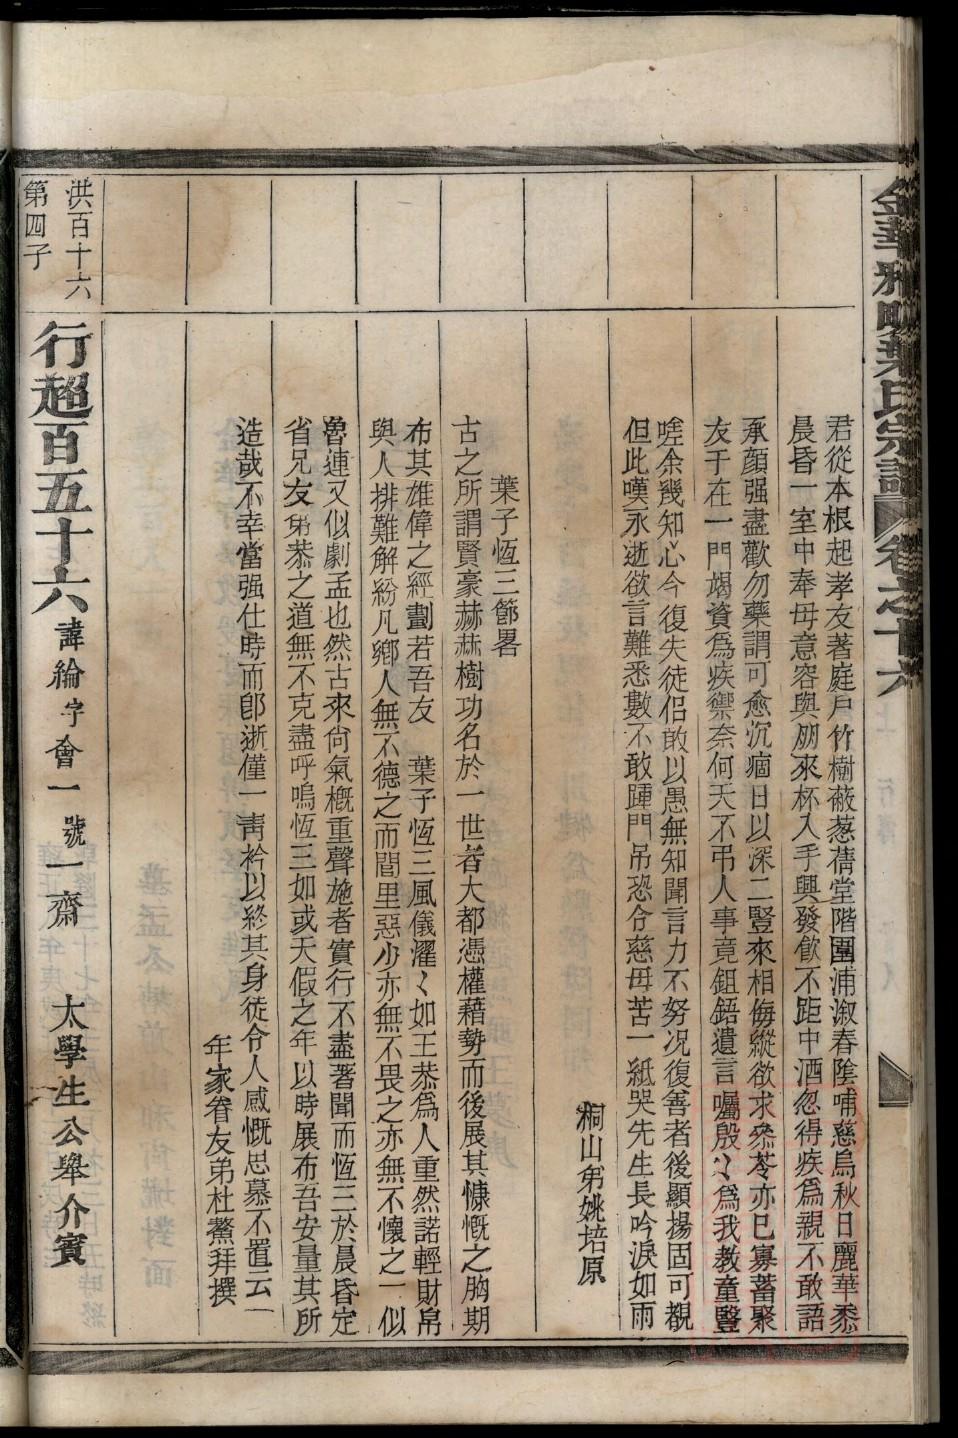 金華雅畈葉氏宗譜 卷之十六
君從本根起孝友著庭戶竹樹蔽葱蒨堂階圍浦溆春陰哺慈烏秋日麗華黍
晨昏一室中奉母意容與朋來杯入手興發飲不距中酒忽得疾爲親不敢語
承顏强盡歡勿藥謂可愈沉痼日以深二豎來相侮縱欲求叅苓亦巳寡蓄聚
友于在一門竭資爲疾禦奈何天不弔人事竟鉏鋙遺言囑殷〻爲我教童豎
嗟余幾知心今復失徒侶敢以愚無知聞言力不努况復善者後顯揚固可覩
但此嘆永逝欲言難悉數不敢踵門吊恐令慈母苦一紙哭先生長吟淚如雨
桐山弟姚培原
葉子恆三節畧
古之所謂賢豪赫赫樹功名於一世者大都憑權藉勢而後展其慷慨之胸期
布其雄偉之經劃若吾友 葉子恆三風儀濯〻如王恭爲人重然諾輕財帛
與人排難解紛凡鄉人無不德之而閭里惡少亦無不畏之亦無不懷之一似
魯連又似劇孟也然古來尙氣概重聲施者實行不盡著聞而恆三於晨昏定
省兄友弟恭之道無不克盡呼嗚恆三如或天假之年以時展布吾安量其所
造哉不幸當强仕時而卽逝僅一靑衿以終其身徒令人感慨思慕不置云
年家眷友弟杜鰲拜撰
洪百十六
第四子
行超百五十六 諱綸字會一號一齋 太學生公舉介賓